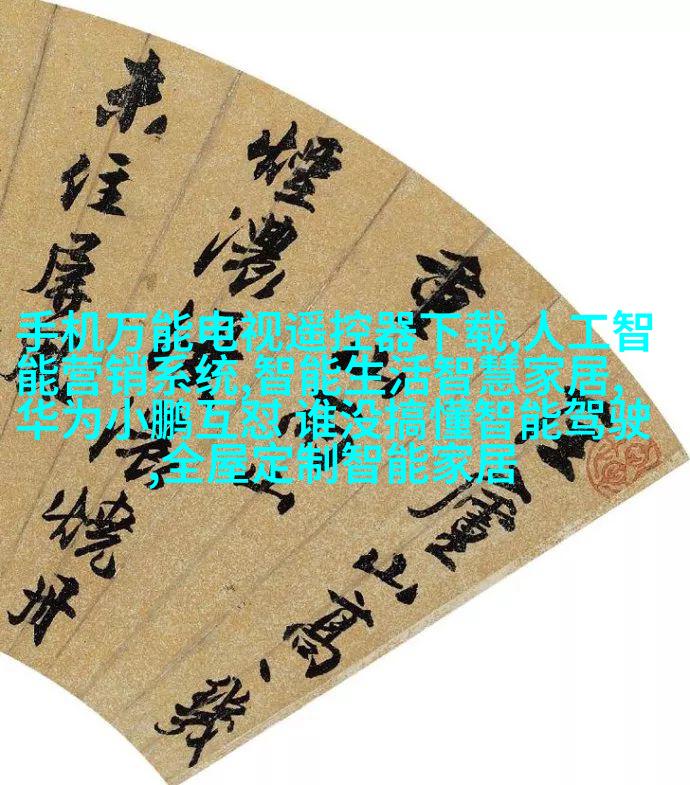 手机万能电视遥控器下载,人工智
能营销系统,智能生活智慧家居,
华为小鹏互怼 谁没搞懂智能驾驶
,全屋定制智能家居
廬山高
煙濃
未住屏
燒丹